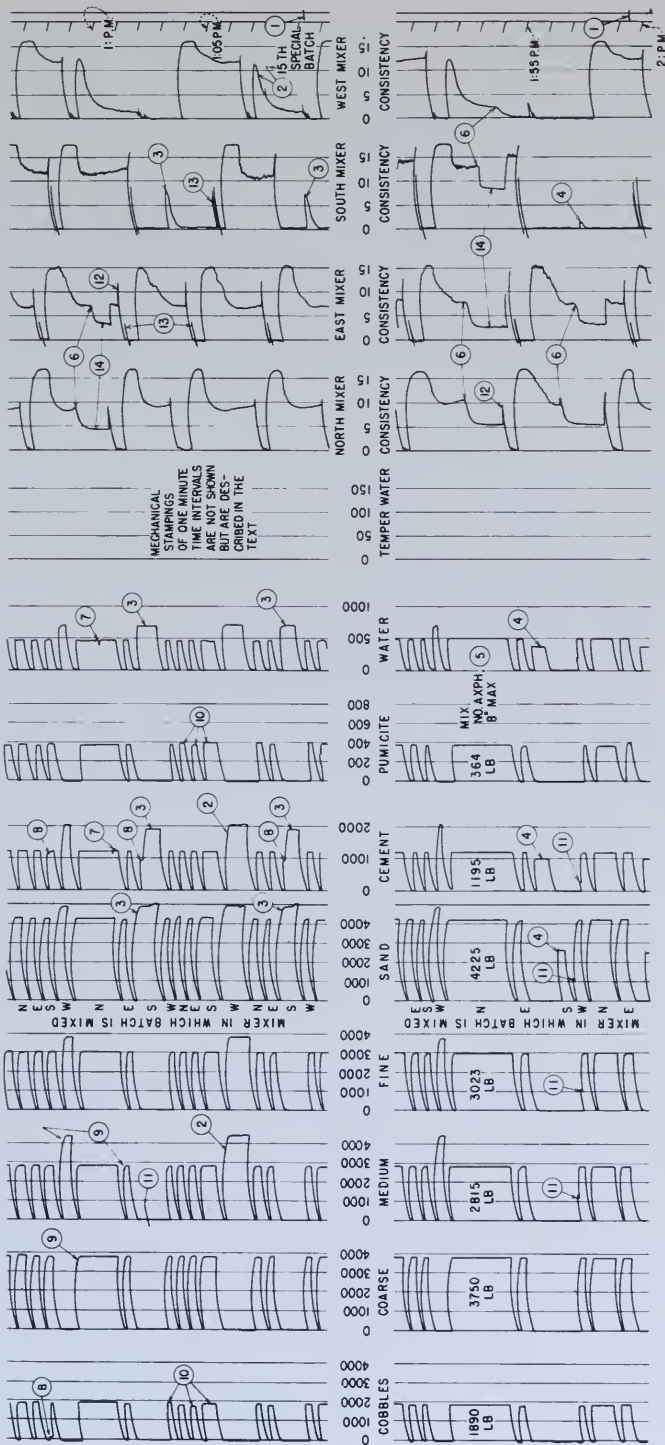 1:P.M.
1:05 P.M.
1
1
1:55 P.M.
2: P.M.
15 TH
SPECIAL
BATCH
2
WEST MIXER
CONSISTENCY
0 5 10 15
0 5 10 15
6
3
13
3
SOUTH MIXER
CONSISTENCY
0 5 10 15
0 5 10 15
14
4
6
14
12
13
EAST MIXER
CONSISTENCY
0 5 10 15
0 5 10 15
6
6
12
NORTH MIXER
CONSISTENCY
0 5 10 15
0 5 10 15
MECHANICAL
STAMPINGS
OF ONE MINUTE
TIME INTERVALS
ARE NOT SHOWN
BUT ARE DES-
CRIBED IN THE
TEXT
TEMPER WATER
0 50 100 150
7
3
3
WATER
0 500 1000
4
10
PUMICITE
0 200 400 600 800
MIX.
NO. AXPH,
8" MAX
5
364
LB
8
7
8
3
2
8
3
CEMENT
0 1000 2000
1195
LB
4
11
3
3
SAND
0 1000 2000 3000 4000
4225
LB
4
11
N E S W N E S W N E S W N E S W
MIXER IN WHICH BATCH IS MIXED
E S W N E S W N E
MIXER IN WHICH BATCH IS MIXED
FINE
0 1000 2000 3000 4000
3023
LB
11
9
11
2
MEDIUM
0 1000 2000 3000 4000
2815
LB
11
9
COARSE
0 1000 2000 3000 4000
3750
LB
8
10
COBBLES
0 1000 2000 3000 4000
1890
LB